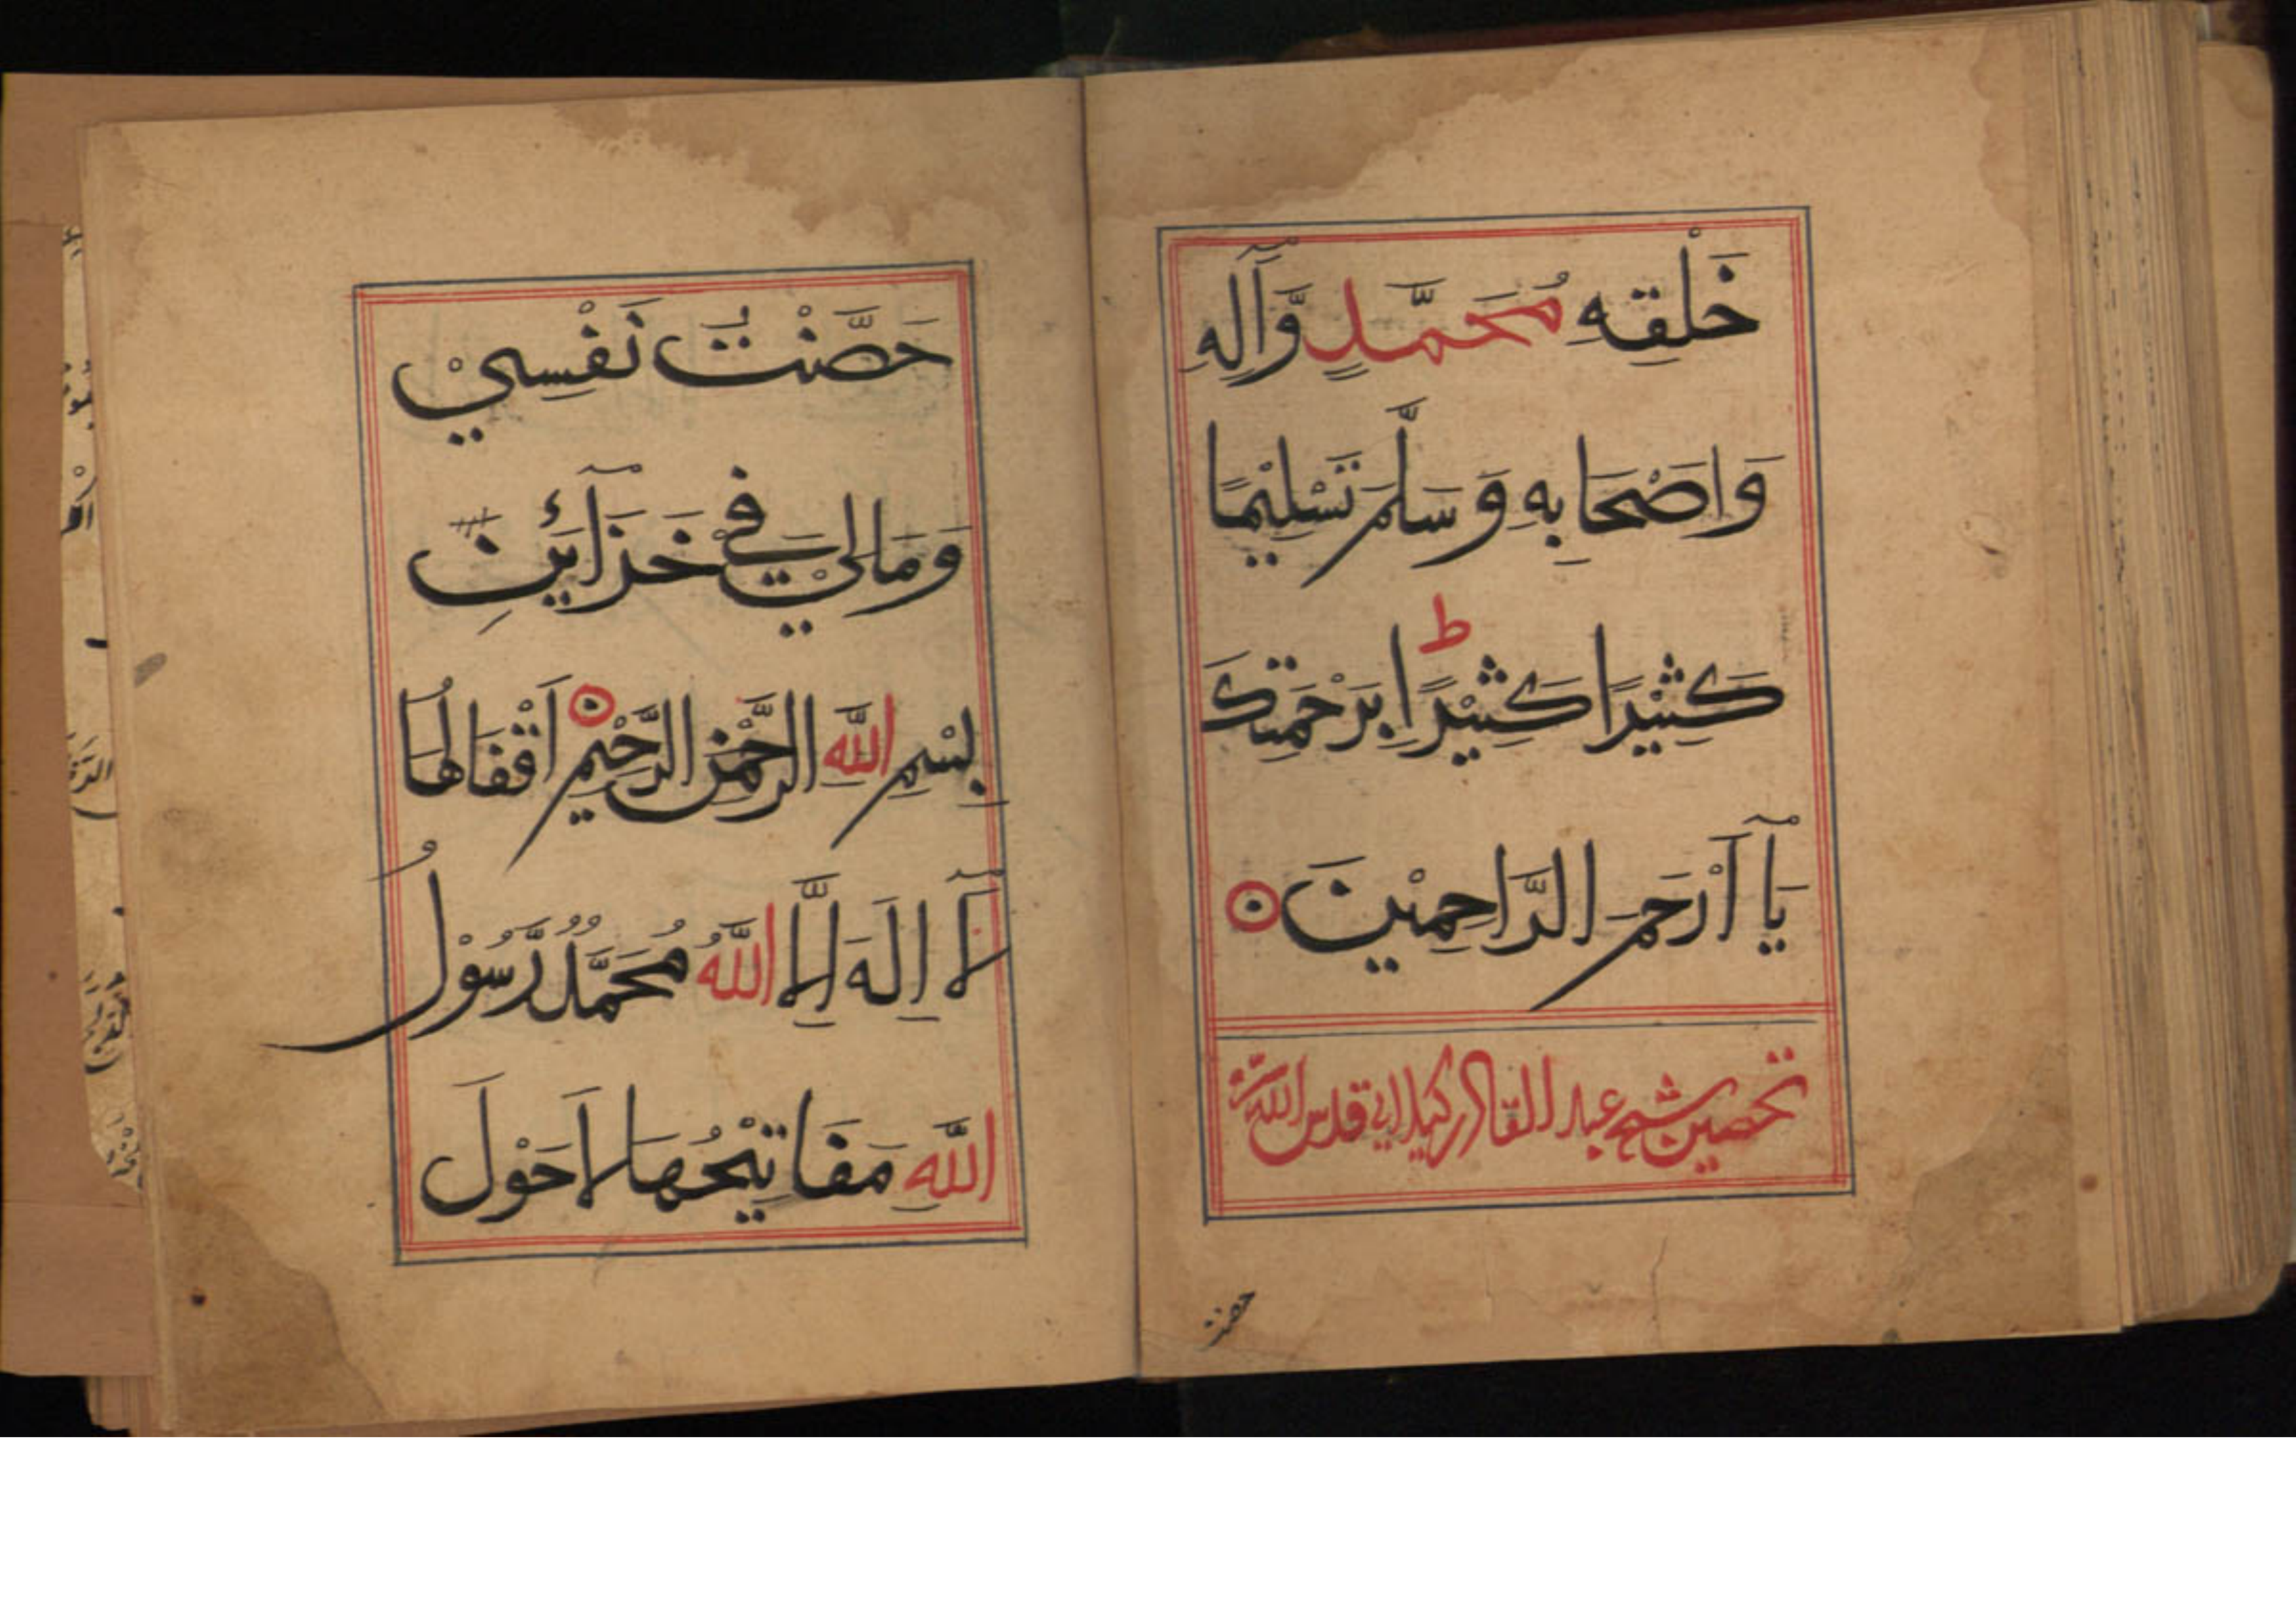 خَلْقِهِ مُحَمَّدٍ وَّآلِهِ
وَاَصْحَابِهِ وَسَلَّمَ تَسْلِيْمًا
كَثِيْرًا كَثِيْرًا ط بِرَحْمَتِكَ
يَآ اَرْحَمَ الرَّاحِمِيْنَ
تحصین شیخ عبد القادر کیلانی قدس الله سره
حصنت
حَصَّنْتُ نَفْسِيْ
وَمَالِيْ فِيْ خَزَآئِنِ
بِسْمِ اللهِ الرَّحْمٰنِ الرَّحِيْمِ اَقْفَالُهَا
لَآ اِلٰهَ اِلَّا اللهُ مُحَمَّدٌ رَّسُوْلُ
اللهِ مَفَاتِيْحُهَا لَا حَوْلَ